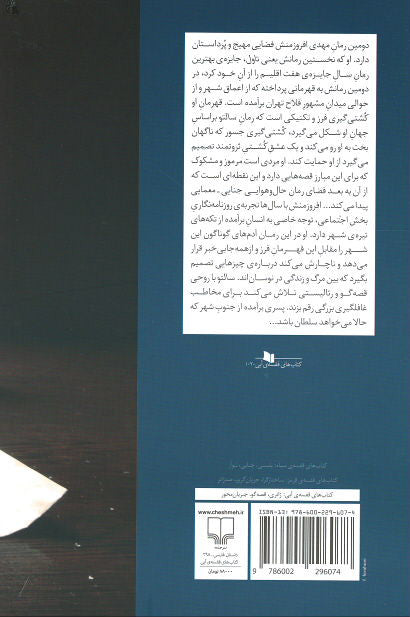 دومین رمانِ مهدی افروزمنش فضایی مهیج و پُرداستان
دارد. او که نخستین رمانش یعنی تاول، جایزه‌ی بهترین
رمانِ سال جایزه‌ی هفت اقلیم را از آنِ خود کرد، در
دومین رمانش به قهرمانی پرداخته که از اعماق شهر و از
حوالی میدانِ مشهورِ فلاح تهران برآمده است. قهرمانِ او
کُشتی‌گیری فرز و تکنیکی است که رمانِ سالتو براساسِ
جهانِ او شکل می‌گیرد، کُشتی‌گیری جسور که ناگهان
بخت به او رو می‌کند و یک عشقِ کُشتی ثروتمند تصمیم
می‌گیرد از او حمایت کند. او مردی است مرموز و مشکوک
که برای این مبارز قصه‌هایی دارد و این نقطه‌ای است که
از آن به بعد فضای رمان حال‌وهوایی جنایی ـ معمایی
پیدا می‌کند... افروزمنش با سال‌ها تجربه‌ی روزنامه‌نگاریِ
بخشِ اجتماعی، توجه خاصی به انسانِ برآمده از تکه‌های
تیره‌ی شهر دارد. او در این رمان آدم‌های گوناگون این
شهر را مقابل این قهرمانِ فرز و ازهمه‌جابی‌خبر قرار
می‌دهد و ناچارش می‌کند درباره‌ی چیزهایی تصمیم
بگیرد که بین مرگ و زندگی در نوسان‌اند. سالتو با روحی
قصه‌گو و رئالیستی تلاش می‌کند برای مخاطب
غافلگیری بزرگی رقم بزند، پسری برآمده از جنوبِ شهر که
حالا می‌خواهد سلطان باشد...
کتاب‌های قفسه‌ی آبی ۱۰۲۰
کتاب‌های قفسه‌ی سیاه: پلیسی، جنایی، نوآر
کتاب‌های قفسه‌ی قرمز: ساختارگرا،
کتاب‌های قفسه‌ی آبی: ژانری، قصه‌گو، جریان‌محور
www.cheshmeh.ir
نشرچشمه
داستان فارسی
کتاب‌های قفسه‌ی آبی
۱۸۰۰۰ تومان
ISBN-13: 978-600-229-607-4
9 786002 296074